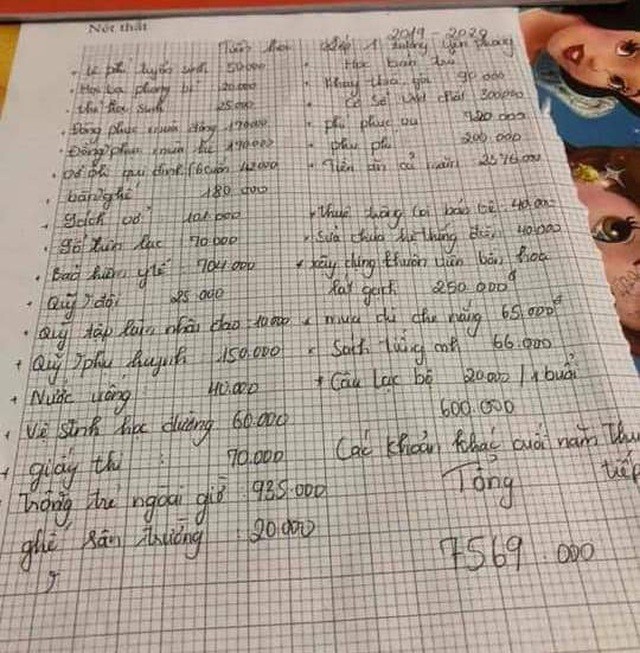 Nét thất
Tiền học lớp 1 trường Yên Phong 2019 - 2020
+ Lệ phí tuyển sinh 50.000
+ Học bạ phong bì 20.000
+ Thẻ học sinh 25.000
+ Đồng phục mùa đông 170.000
+ Đồng phục mùa hè 190.000
+ Vở ôli qui định (6 cuốn 42000
+ bàn ghế 180.000
+ Sách vở 101.000
+ Sổ liên lạc 70.000
+ Bảo hiểm y tế : 704.000
+ Quỹ đội 25.000
+ Quỹ nhân đạo 10000
+ Quỹ phụ huynh : 150.000
+ Nước uống : 40.000
+ Vệ sinh học đường 60.000
+ giấy thi : 70.000
Trông trẻ ngoài giờ : 935.000
ghế sân trường : 20.000
+ Học bán trú
+ Khay thìa 90.000
+ Cơ sở vật chất 300000
+ phí phục vụ 720.000
+ phụ phí 200.000
+ Tiền ăn cả năm 2576.000
+ thuê trông coi bảo vệ 40.000
+ Sửa chữa hệ thống điện 40.000
+ xây dựng khuôn viên bồn hoa
lát gạch 250.000đ
+ mua dù che nắng 65.000đ
+ Sách tiếng anh 66.000
+ Câu lạc bộ 20.000 / 1 buổi
600.000
Các khoản khác cuối năm Thu
tiếp
Tổng
7569.000